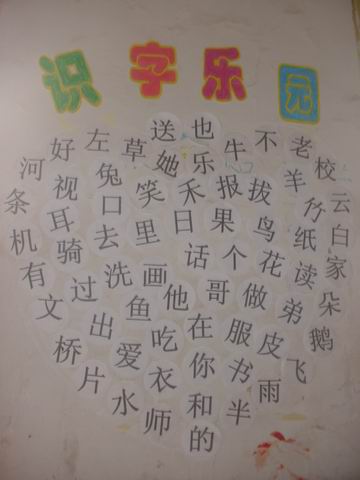 识字乐园
好左草送也牛不老
河视兔她乐羊校
条耳口笑禾报拔竹云
机骑去里日果鸟纸白
有过洗画话个花读家
文出鱼他哥做弟朵
桥爱吃在服皮鹅
片衣你书飞
水师和半雨
的